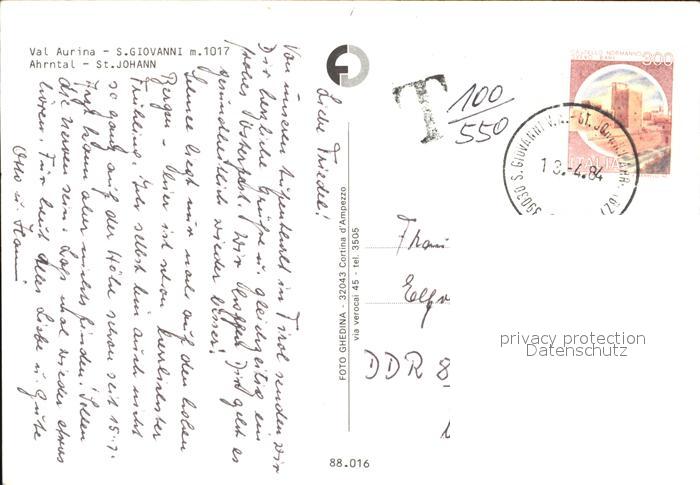 Val Aurina - S.GIOVANNI m.1017
Ahrntal - St.JOHANN
Liebe Friedel!
Von unserem Urlaub in Tirol senden wir
Dir herzliche Grüße u. gleichzeitig ein
frohes Osterfest. Wir hoffen Dir geht es
gesundheitlich wieder besser!
Schnee liegt nur noch auf den hohen
Bergen - hier ist schon herrlichster
Frühling. Ich selbst bin auch nicht
so ganz auf der Höhe schon seit
Arzt kann aber nichts finden. Sollen
die Nerven sein. Laß mal wieder etwas
hören. Für heut alles Liebe u. Gute
Otto u.
FOTO GHEDINA - 32043 Cortina d'Ampezzo
via verocai 45 - tel. 3505
88.016
T
100
550
CASTELLO NORMANNO
300
ITALIA
39030 S.GIOVANNI
13.-4.84
Frau
DDR 8
privacy protection
Datenschutz